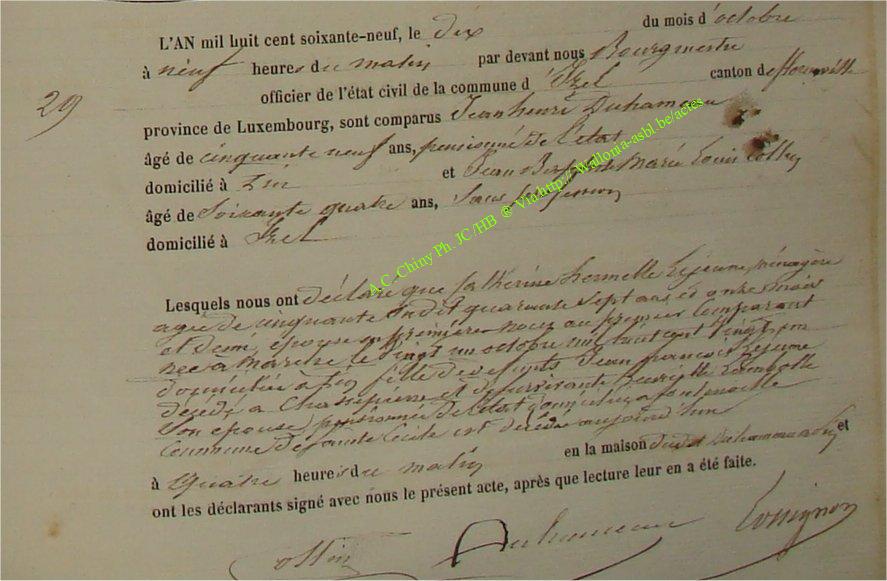 L'AN mil huit cent soixante-neuf, le dix du mois d'octobre
à neuf heures du matin par devant nous Bourgmestre
officier de l'état civil de la commune d'Izel canton de Florenville
29
province de Luxembourg, sont comparus Jean henri Duhameau
âgé de cinquante neuf ans, pensionné de l'état
domicilié à et Jean Marie Louis
âgé de Soixante quatre ans, Sans profession
domicilié à Izel
Lesquels nous ont déclaré que Catherine Lejeune, ménagère
agée de cinquante Sept ans et onze mois
et demi, épouse en première noce au premier Comparant
née a le vingt un octobre mil huit cent vingt un
domiciliée à fille des Jean francois Lejeune
décédé a Chassepierre et de Survivante
Son épouse, pensionnée de l'état domiciliée a
Commune de Sainte Cécile est décédée aujourd'hui
à quatre heures du matin en la maison dudit Duhameau et
ont les déclarants signé avec nous le présent acte, après que lecture leur en a été faite.
Duhameau Rossignon
A.C. Chiny Ph. JC/HB @ Via http://Wallonia-asbl.be/actes